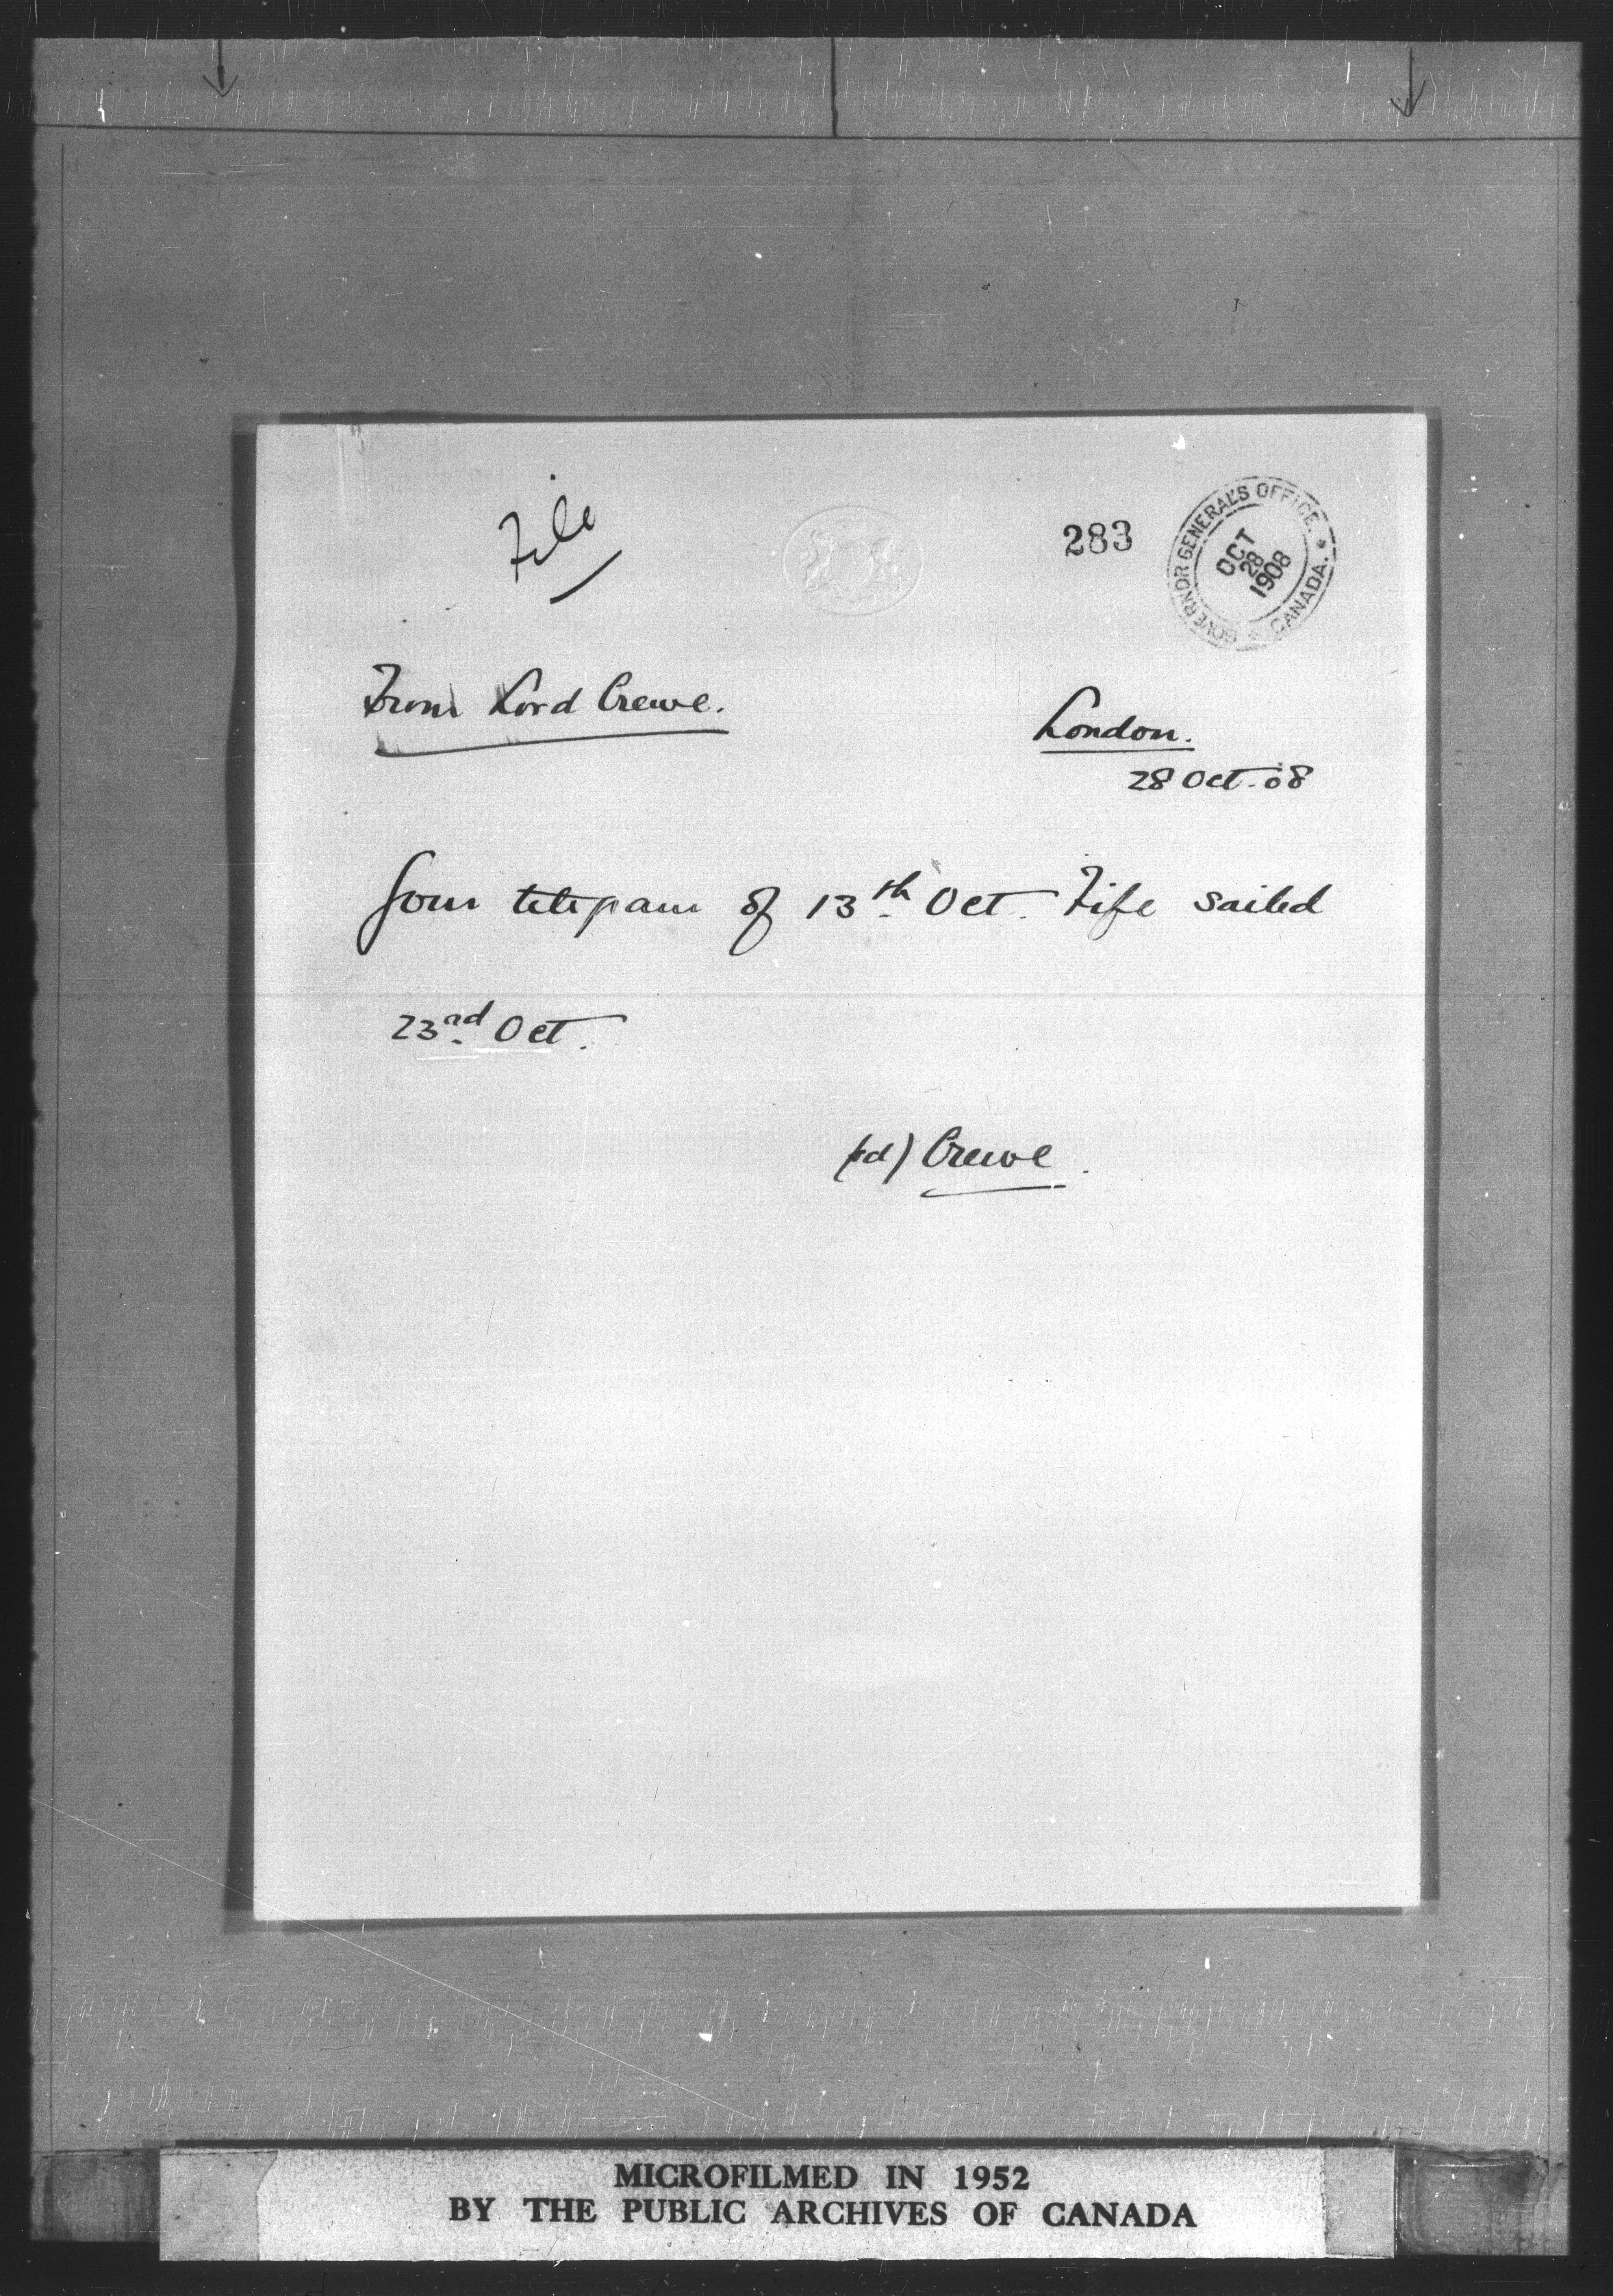 File
283
GOVERNOR GENERAL'S OFFICE. * CANADA. *
OCT
28
1908
From Lord Crewe.
London.
28 Oct. 08
Your telegram of 13th Oct. Fife sailed
23rd Oct.
(sd) Crewe.
MICROFILMED IN 1952
BY THE PUBLIC ARCHIVES OF CANADA